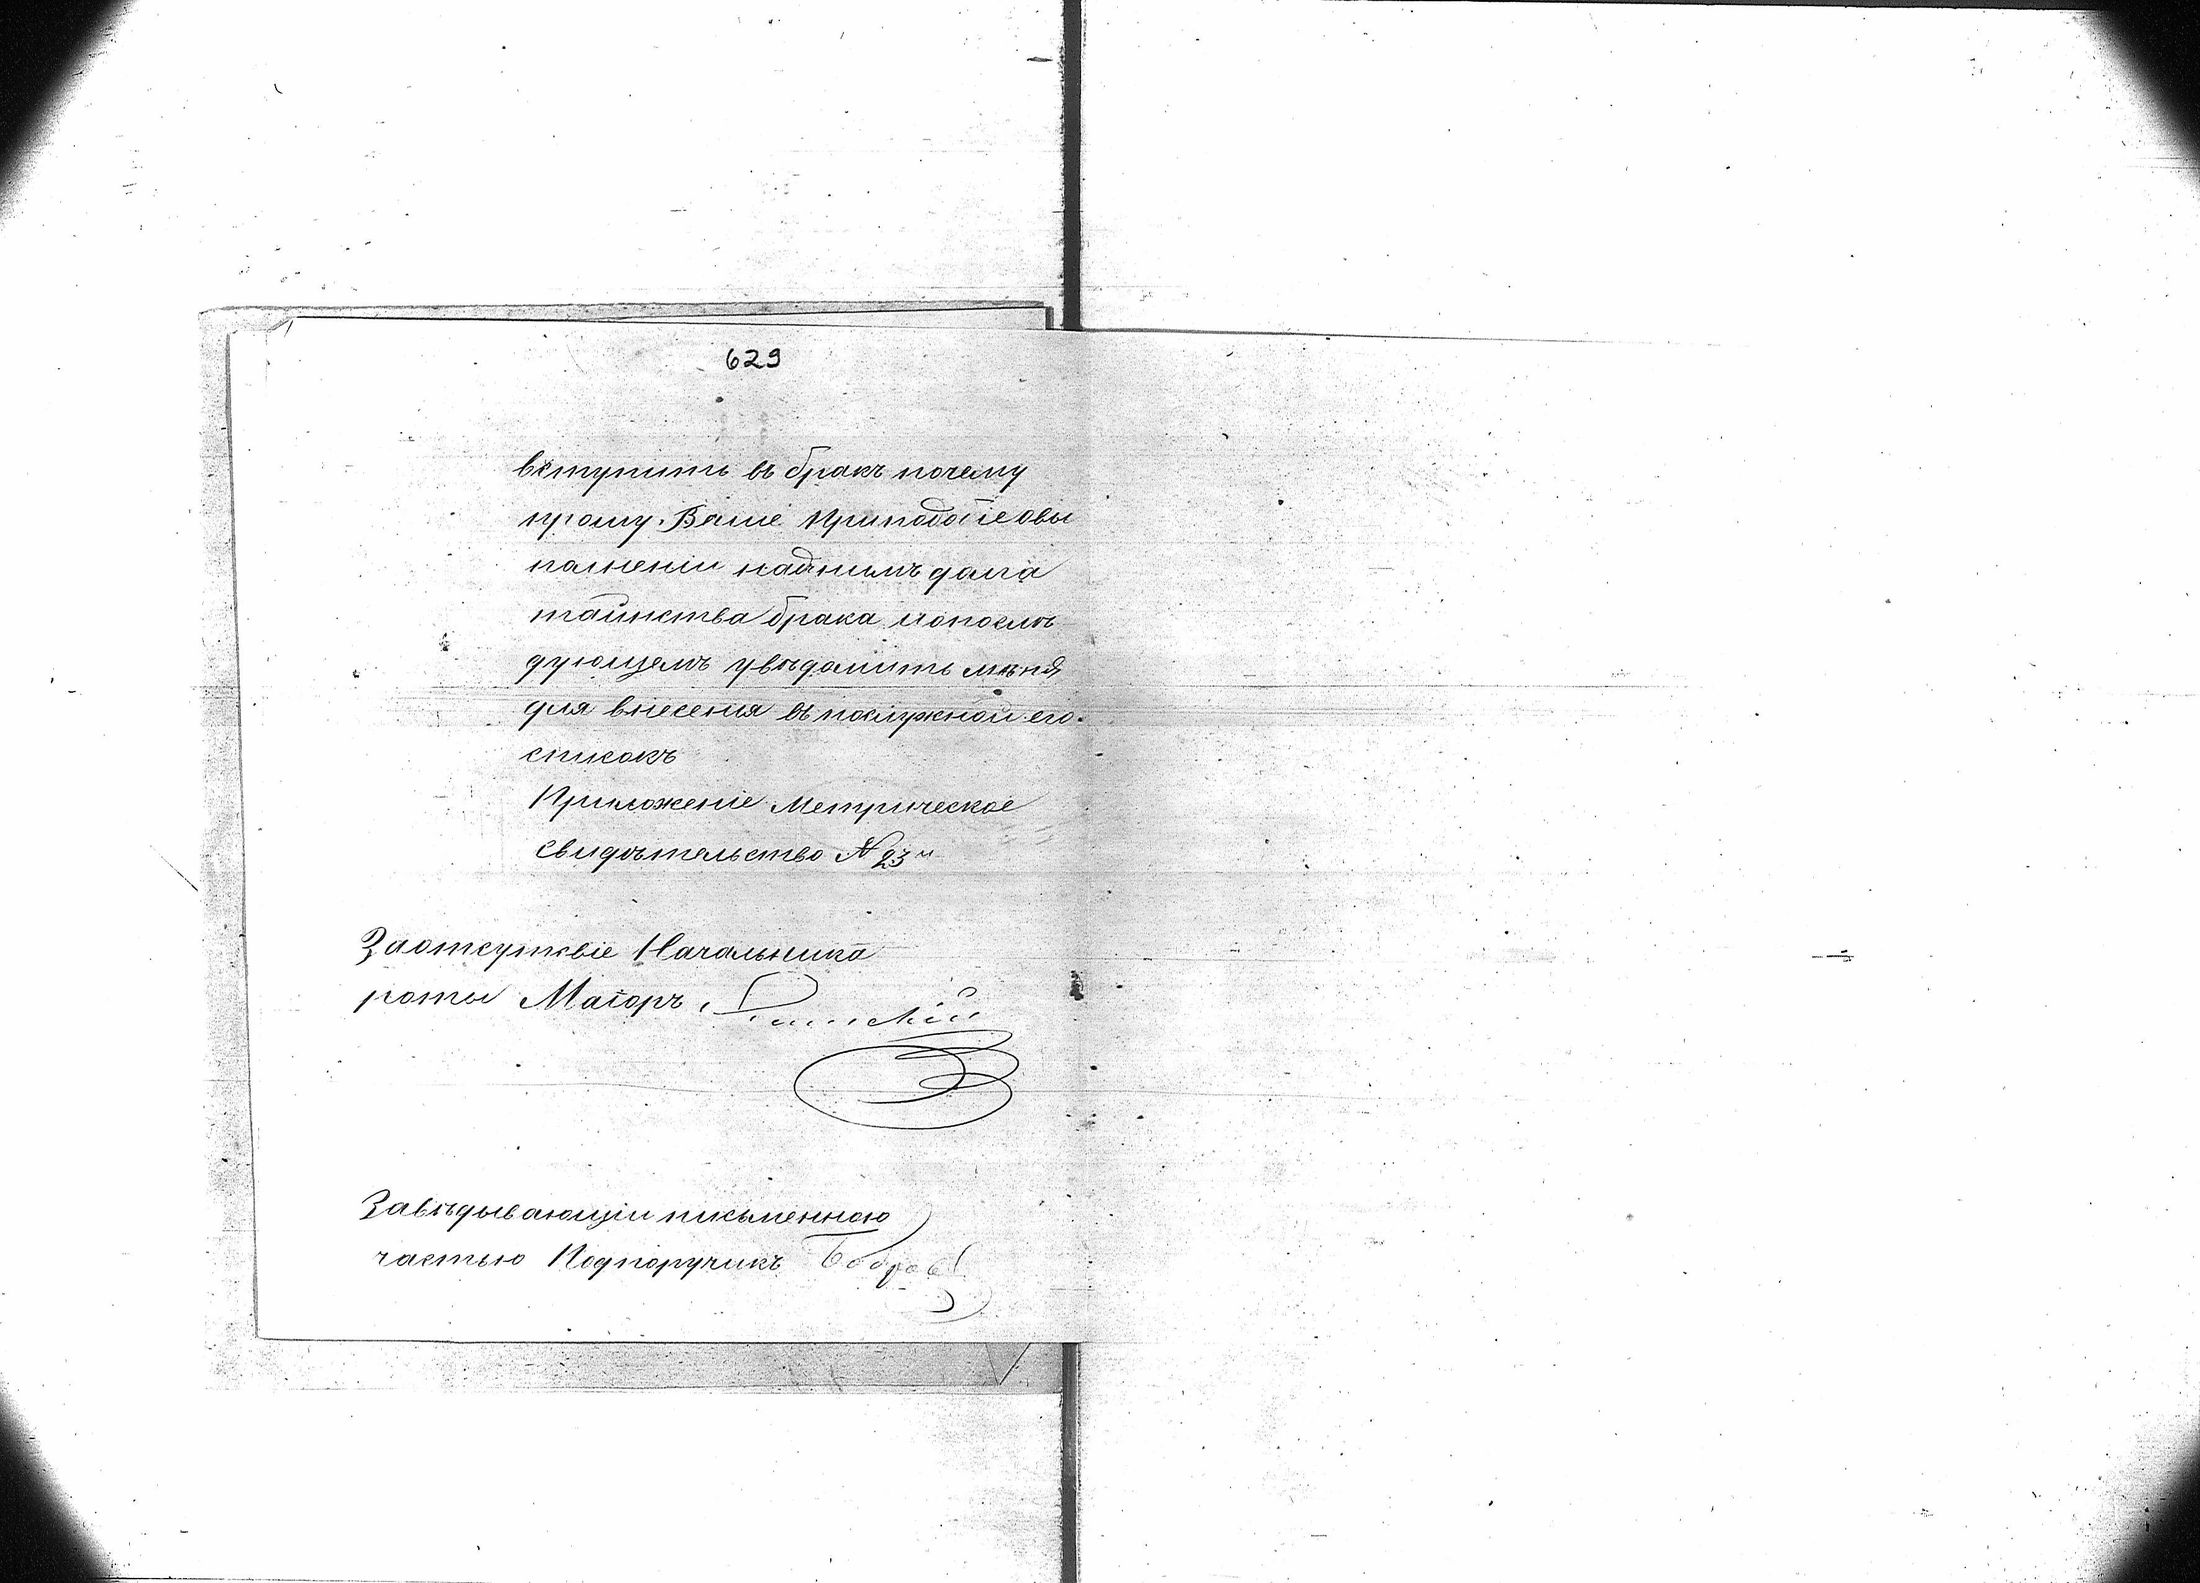 629
вступить въ бракъ почему
прошу Ваше Приподобіе овы
полненіи надънимъ долга
таинства брака ипослѣ
дующемъ увѣдомить мѣня
для внесенія въ послужной его
списокъ
Приложеніе Метрическое
свидѣтельство № 23й
Заотсутсвіе Начальника
роты Маіоръ
Завѣдывающіи письменною
частью Подпоручикъ Бобровъ